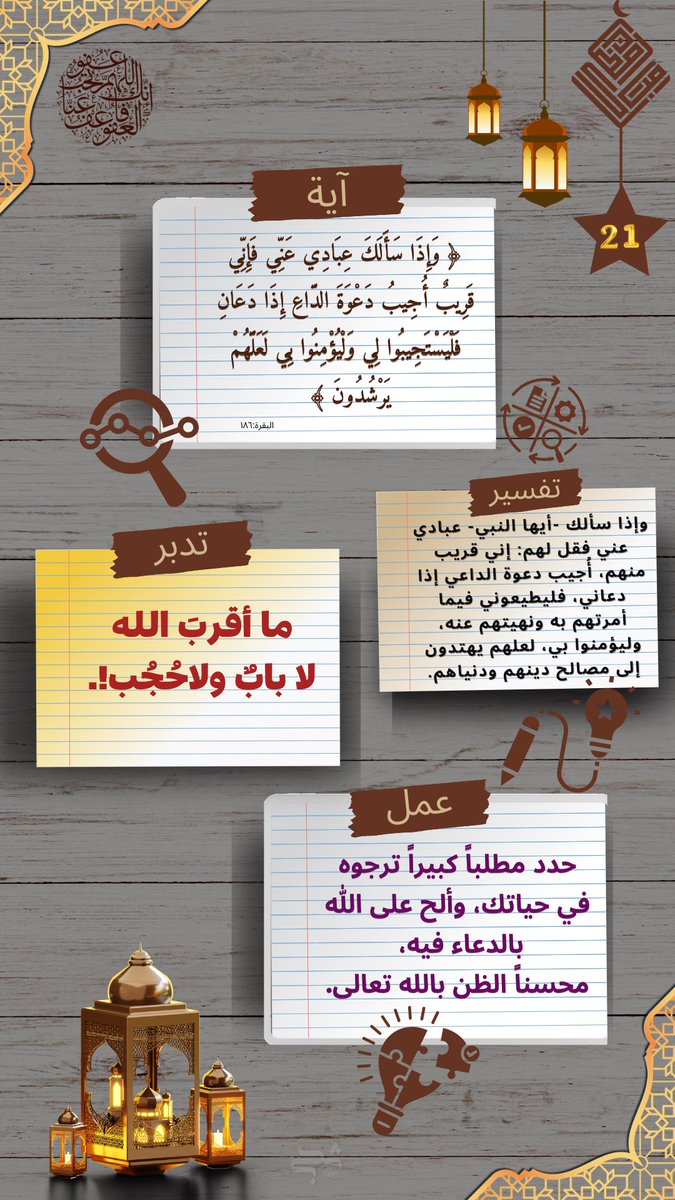 اللهم إنك عفو تحب العفو فاعف عنا
21
آية
﴿ وَإِذَا سَأَلَكَ عِبَادِي عَنِّي فَإِنِّي
قَرِيبٌ أُجِيبُ دَعْوَةَ الدَّاعِ إِذَا دَعَانِ
فَلْيَسْتَجِيبُوا لِي وَلْيُؤْمِنُوا بِي لَعَلَّهُمْ
يَرْشُدُونَ ﴾
البقرة:١٨٦
تفسير
وإذا سألك -أيها النبي- عبادي
عني فقل لهم: إني قريب
منهم، أُجيب دعوة الداعي إذا
دعاني، فليطيعوني فيما
أمرتهم به ونهيتهم عنه،
وليؤمنوا بي، لعلهم يهتدون
إلى مصالح دينهم ودنياهم.
تدبر
ما أقربَ الله
لا بابٌ ولاحُجُب!.
عمل
حدد مطلباً كبيراً ترجوه
في حياتك، وألح على الله
بالدعاء فيه،
محسناً الظن بالله تعالى.